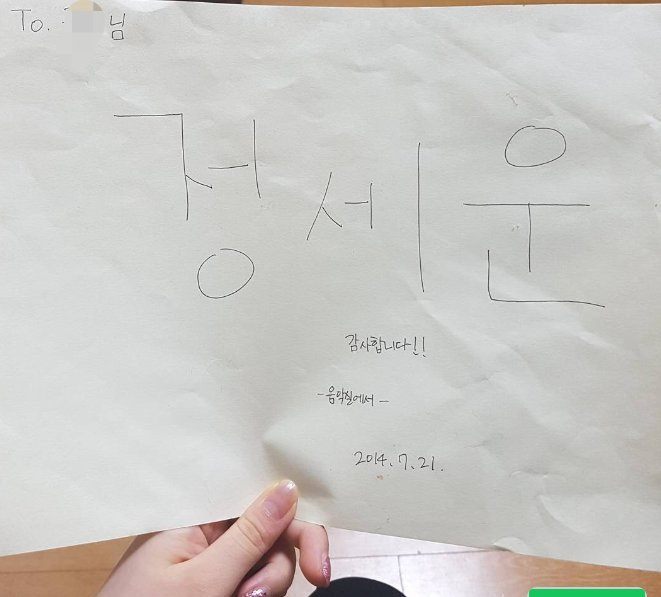 To. 님
정세운
감사합니다!!
-음악실에서-
2014.7.21.